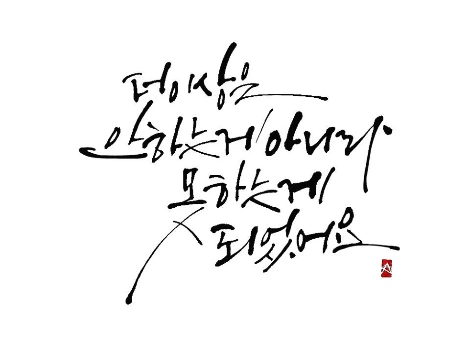 더이상은
안하는게 아니라
못하는게
되었어요